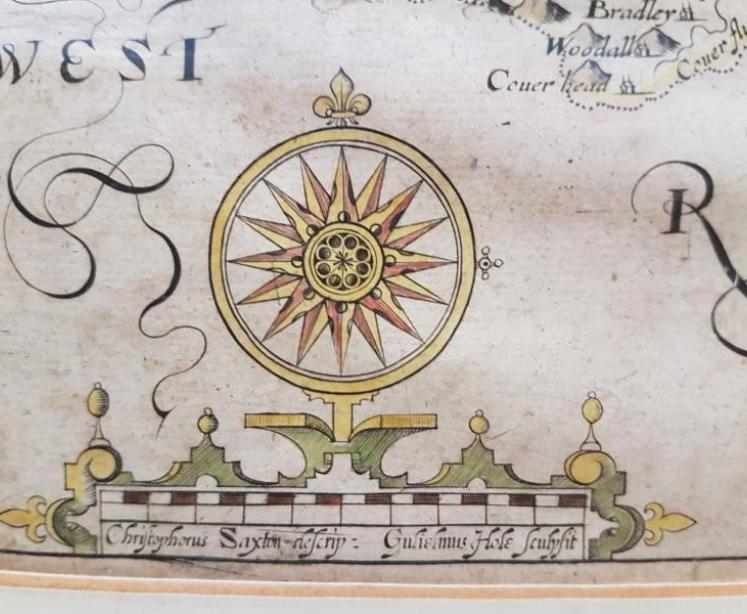 Bradley
WEST
Woodall
Couer flu
Couer head
R
Christophorus Saxton descrip: Gulielmus Hole sculpsit